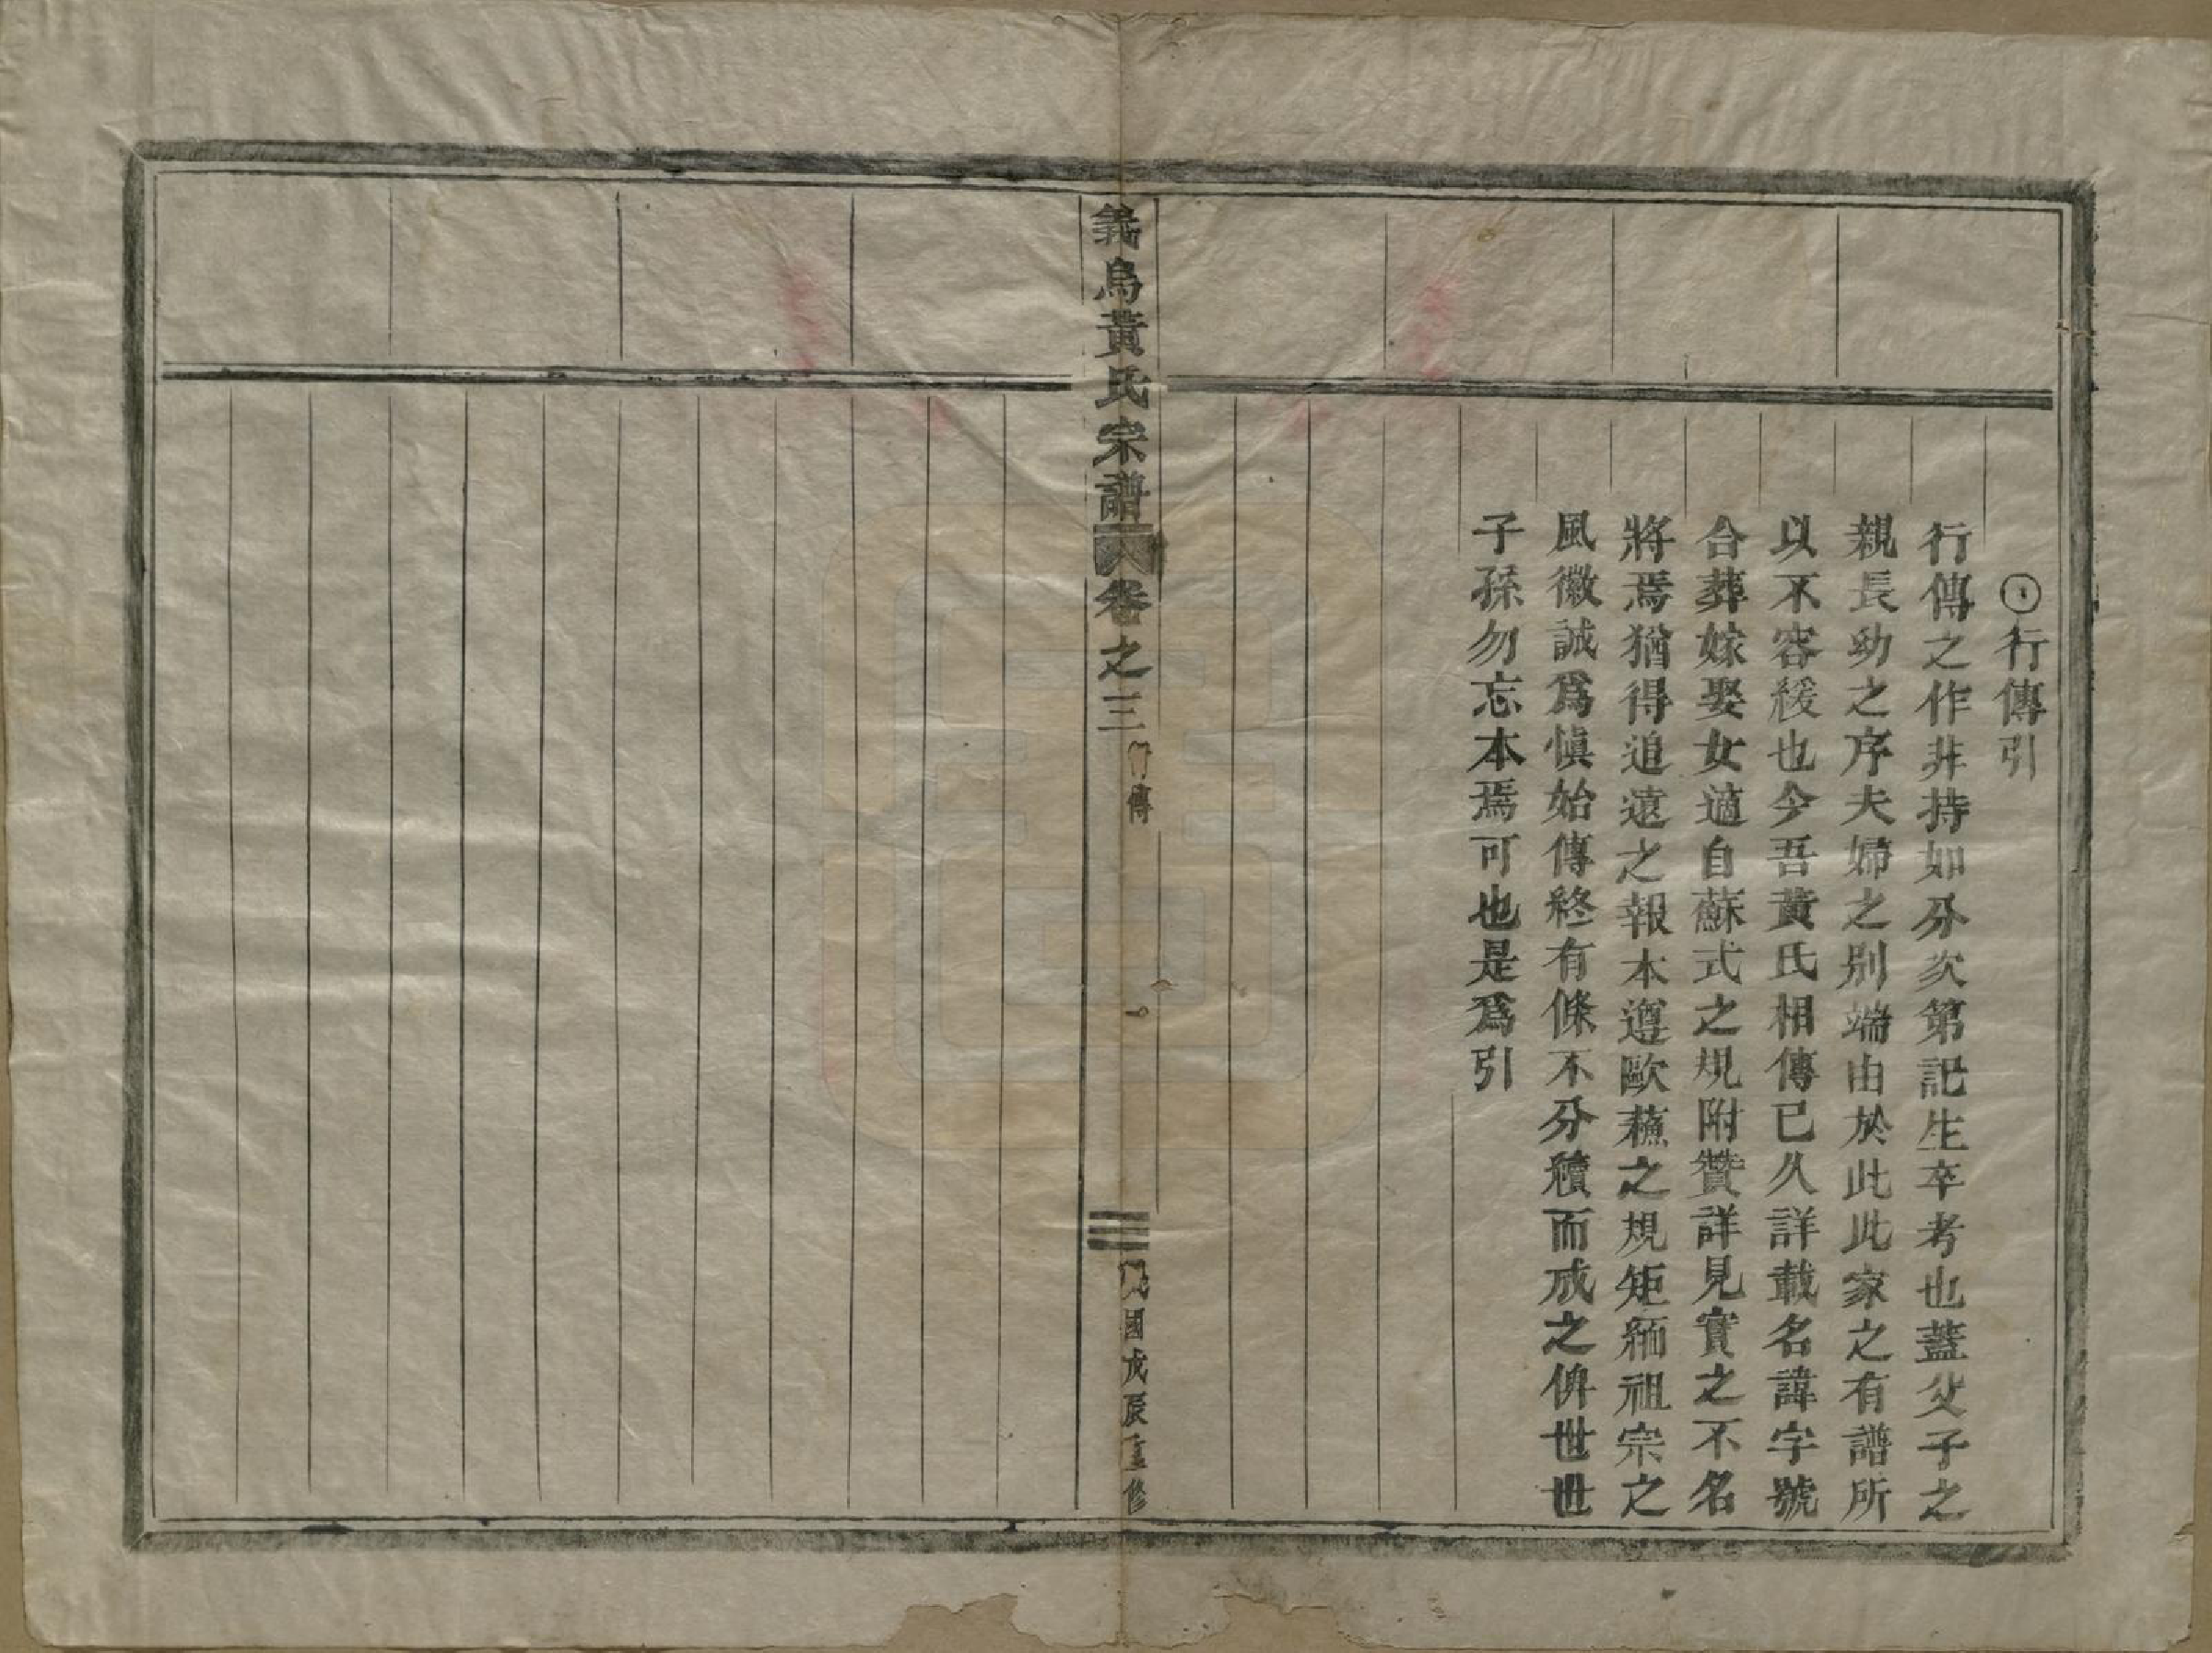 行傳引
行傳之作非持如分次第記生卒考也蓋父子之
親長幼之序夫婦之別端由於此此家之有譜所
以不容緩也今吾黃氏相傳已久詳載名諱字號
合葬嫁娶女適自蘇式之規附贊詳見實之不名
將焉猶得追遠之報本遵歐蘓之規矩緬祖宗之
風徽誠爲愼始傳終有條不分䊭而成之俾世世
子孫勿忘本焉可也是爲引
義烏黃氏宗譜 卷之三 行傳 一 民國戊辰重修